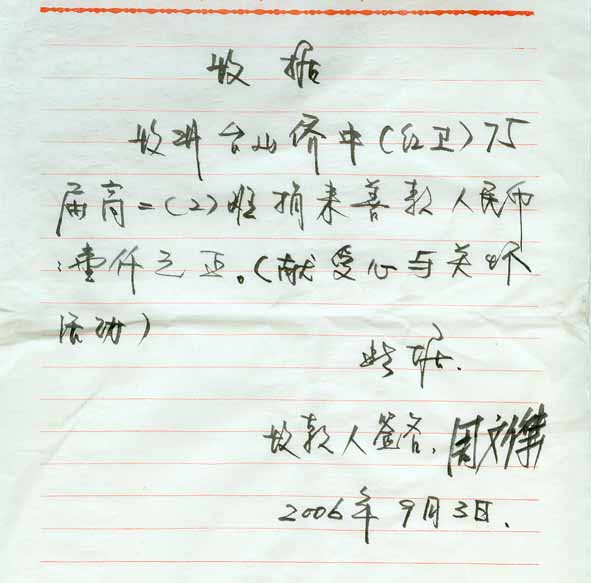 收据
收到台山侨中(红卫)75
届高二(2)班捐来善款人民币
:壹仟元正。(献爱心与关怀
活动)
此据.
收款人签名.周文伟
2006年9月3日.